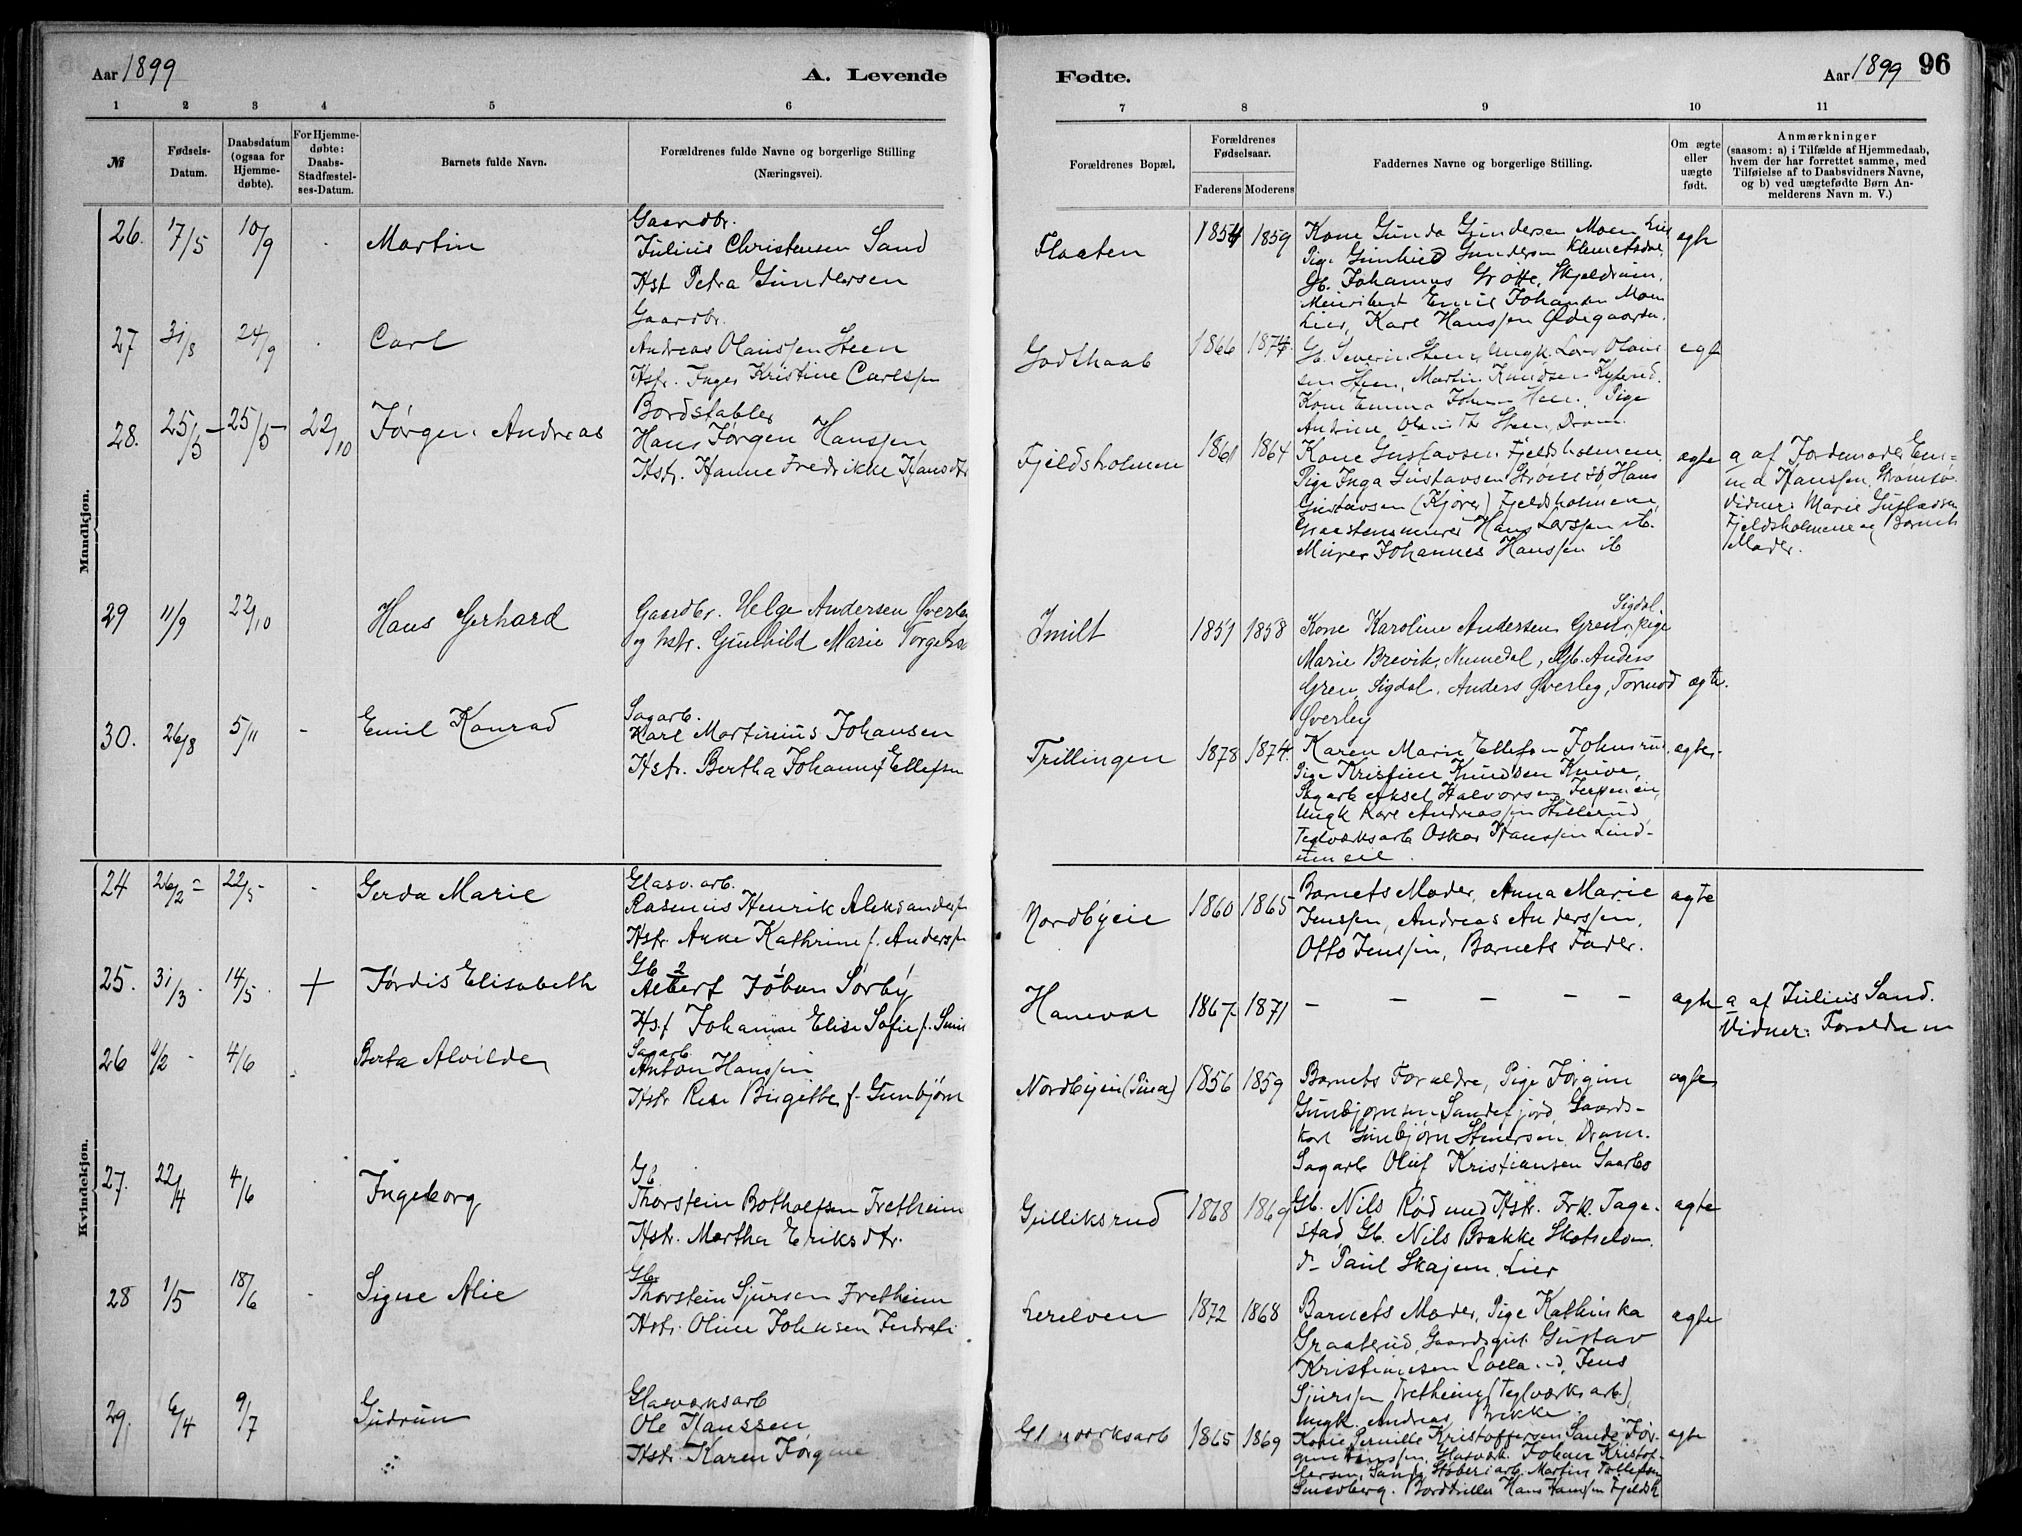 Aar 1899
A. Levende
Fødte.
Aar 1899
96
1 2 3 4 5 6 7 8 9 10 11
№
Fødsels-
Datum.
Daabsdatum
(ogsaa for
Hjemme-
døbte).
For Hjemme-
døbte:
Daabs-
Stadfæstel-
ses-Datum.
Barnets fulde Navn.
Forældrenes fulde Navne og borgerlige Stilling
(Næringsvei).
Forældrenes Bopæl.
Forældrenes
Fødselsaar.
Faderens Moderens
Faddernes Navne og borgerlige Stilling.
Om ægte
eller
uægte
født.
Anmærkninger
(saasom: a) i Tilfælde af Hjemmedaab,
hvem der har forrettet samme, med
Tilføielse af to Daabsvidners Navne,
og b) ved uægtefødte Børn An-
melderens Navn m. V.)
Mandkjøn.
26. 17/5 10/9 Martin
Gaardbr.
Julius Christensen Sand
Hst Petra Gundersen
Flaaten 1854 1859
Kone Gunda Gundersen Moen Lier
Pige Gunhild Gundersen
Gb. Johannes Grøtte, Skjeldrum,
Emil Johansen Moen
Lier, Karl Hanssen Ødegaarden.
ægte
27 31/8 24/9 Carl
Gaardbr.
Andreas Olaussen Steen
Hstr. Inger Kristine Carlssen
Godthaab 1866 1874
Gb. Severin Steen, Ungk. Lars Olaus
sen Steen, Martin Knudsen
Kone Emma Steen, Pige
Andrine Steen, Dram.
egt
28. 25/5 25/5 22/10 Jørgen Andreas
Bordstabler
Hans Jørgen Hanssen
Hstr. Hanne Fredrikke Hansdtr
Fjeldsholmen 1861 1864
Kone Gustavsen Fjeldsholmene
Pige Inga Gustavsen Strømsø, Hans
Gustavsen (Kjører) Fjeldsholmene,
Graastensmurer Hans Larssen ib.
Murer Johannes Hanssen ib
ægte
a af Jordemoder Em=
ma Hanssen, Strømsø.
Vidner: Marie Gustavsen
Fjeldsholmene og Barnets
Moder.
29 11/9 22/10 Hans Gerhard
Gaardbr. Helge Andersen Øverby
og hstr. Gunhild Marie Torgers
Smilt 1851 1858
Sigdal.
Kone Karoline Andersen Gren, pige
Marie Brevik, Numedal, Gb. Anders
Gren, Sigdal, Anders Øverby, Tormod
Øverby
ægte.
30. 26/8 5/11 Emil Konrad
Sagarb.
Karl Martinius Johansen
Hstr. Bertha Johanne f. Ellefsen
Trillingen 1878 1874.
Karen Marie Ellefsen Johnsrud,
Pige Kristine Knudsen Knive,
Sagarb Aksel Halvorsen
Ungk Karl Andreassen Hillerud,
Teglværksarb Oskar Hanssen Lind-
umeie.
ægte.
Kvindekjøn.
24 26/2 22/5 Gerda Marie
Glasv. arb.
Rasmus Henrik Aleksanders
Hstr. Anne Kathrine f. Anderss
Nordbyeie 1860 1865
Barnets Moder, Anna Marie
Jenssen, Andreas Anderssen,
Otto Jenssen, Barnets Fader.
ægte
25. 31/3 14/5 + Jørdis Elisabeth
Gb 2
Albert Johan Sørby
Hsf Johanne Elise Sofie f.
Haneval 1867 1871
— — — — —
ægte
a af Julius Sand.
Vidner: Forældrene
26 4/2 4/6 Berta Alvilde
Sagarb
Anton Hanssen
Hstr Rise Birgitte f. Gunbjørn
Nordbyeie 1856 1859
Barnets Forældre, Pige Jørgine
Gunbjørnsen Sandefjord, Gaards-
karl Gunbjørn Dram.
Sagarb Oluf Kristiansen
ægte
27. 22/4 4/6 Ingeborg
Gb.
Thorstein Botholfsen Fretheim
Hstr. Martha Eriksdtr.
Gulliksrud 1868 1869
Gb. Nils Rød med Hstr. Frk. Tage-
stad, Gb. Nils Brække Skotselven.
do Paul Skajem, Lier
ægte
28 1/5 18/6 Signe Alie
Gb.
Thorstein Sjursen Fretheim
Hstr. Oline Johnsen
Lerelven 1872 1868
Barnets Moder, Pige Kathinka
Graaterud, Gaardsgut Gustav
Kristiansen Jens
Sjurssen Fretheim (Teglværksarb),
Ungk. Andreas Brekke.
ægte
29. 6/4 9/7 Gudrun
Glasværksarb
Ole Hanssen
Hstr. Karen Jørgine
Glasværksarb 1865 1869
Kone Pernille Kristoffersen Sande, Jør-
gine Hanssen, Glasværk Johan Kristof-
fersen, Sande, Støberiarb. Martin Tollefsen
Smedberg. Bordtriller Hans Hanssen Fjeldsh
ægte